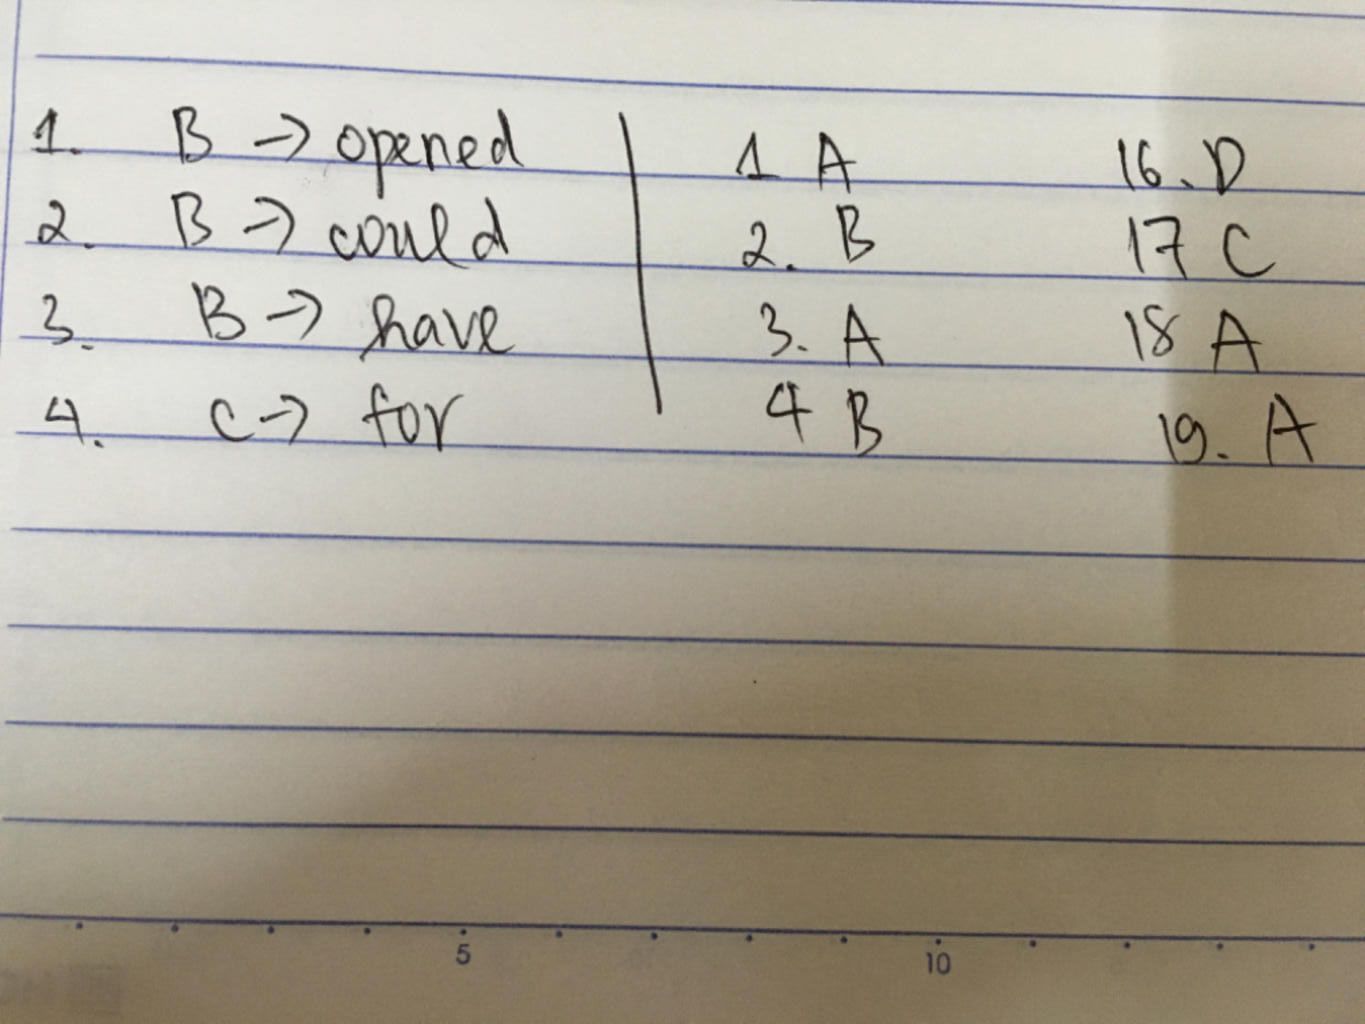 1. B → opened
2. B → could
3. B → have
4. C → for
1 A
2. B
3. A
4 B
16. D
17 C
18 A
19. A
5 10